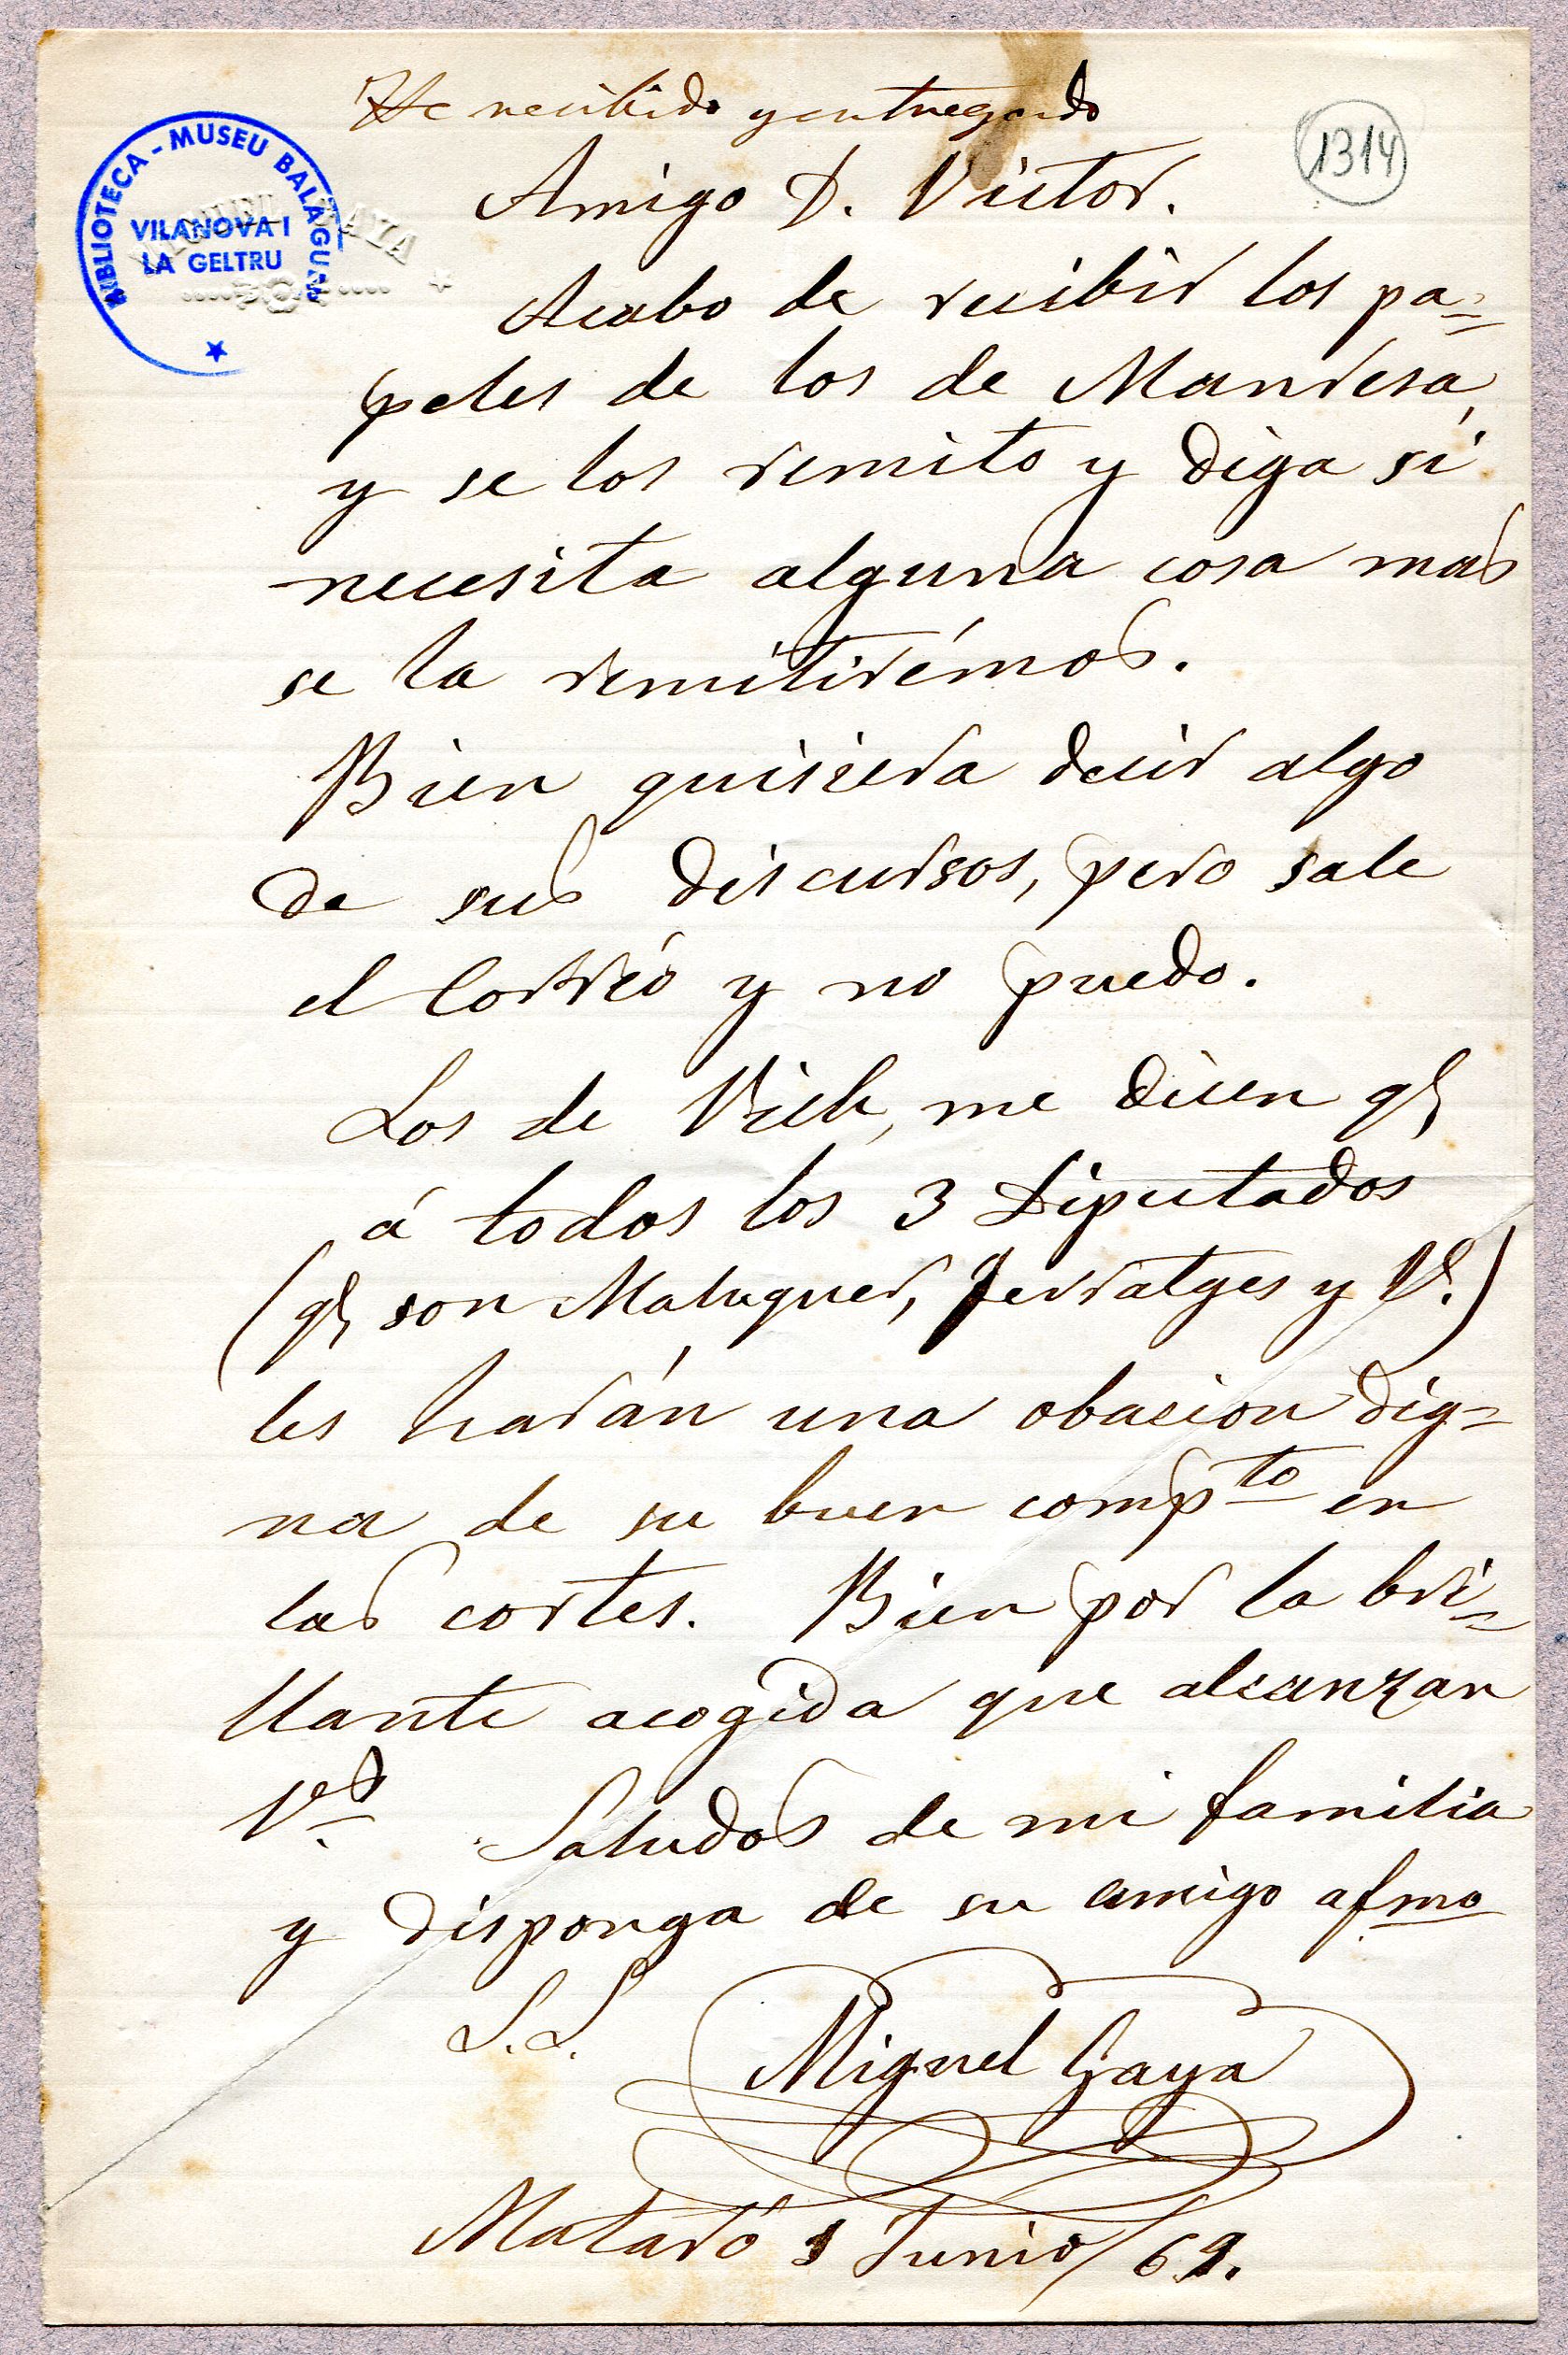 He recibido y entregado
1314
BIBLIOTECA - MUSEU BALAGUER
VILANOVA I
LA GELTRU
MIGUEL GAYA
Amigo D. Victor.
Acabo de recibir los pa=
peles de los de Manresa,
y se los remito y diga si
necesita alguna cosa mas
se la remitirémos.
Bien quisiera decir algo
de sus discursos, pero sale
el Corréo y no puedo.
Los de Vich, me dicen q.
á todos los 3 Diputados
(q. son Maluquer, Ferratges y V.)
les harán una obacion dig=
na de su buen compto en
las cortes. Bien por la bri=
llante acogida que alcanzan
Vds. Saludos de mi familia
y disponga de su amigo afmo
S.S.
Miguel Gaya
Mataró Junio/69.